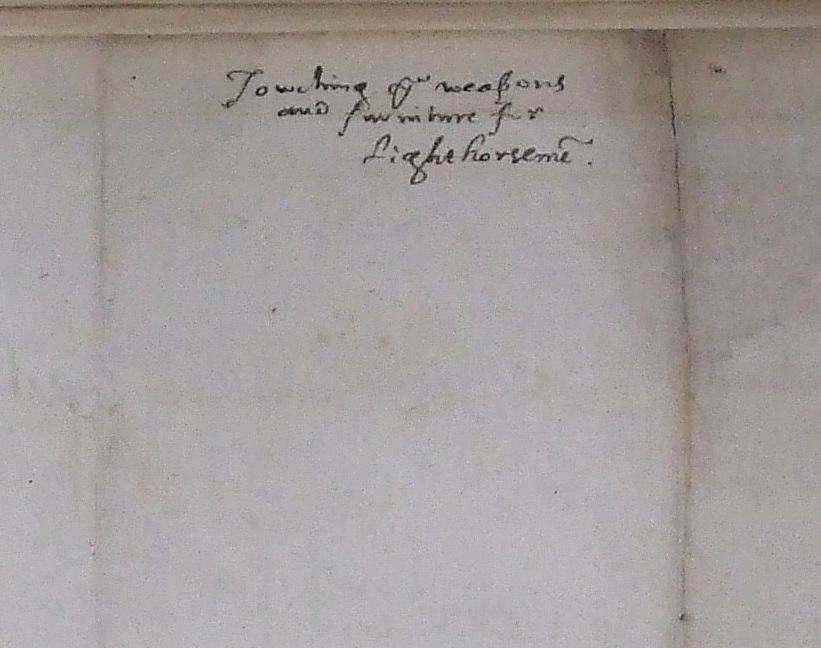 Towching yͤ weapons
and furniture for
lighthorsemē.